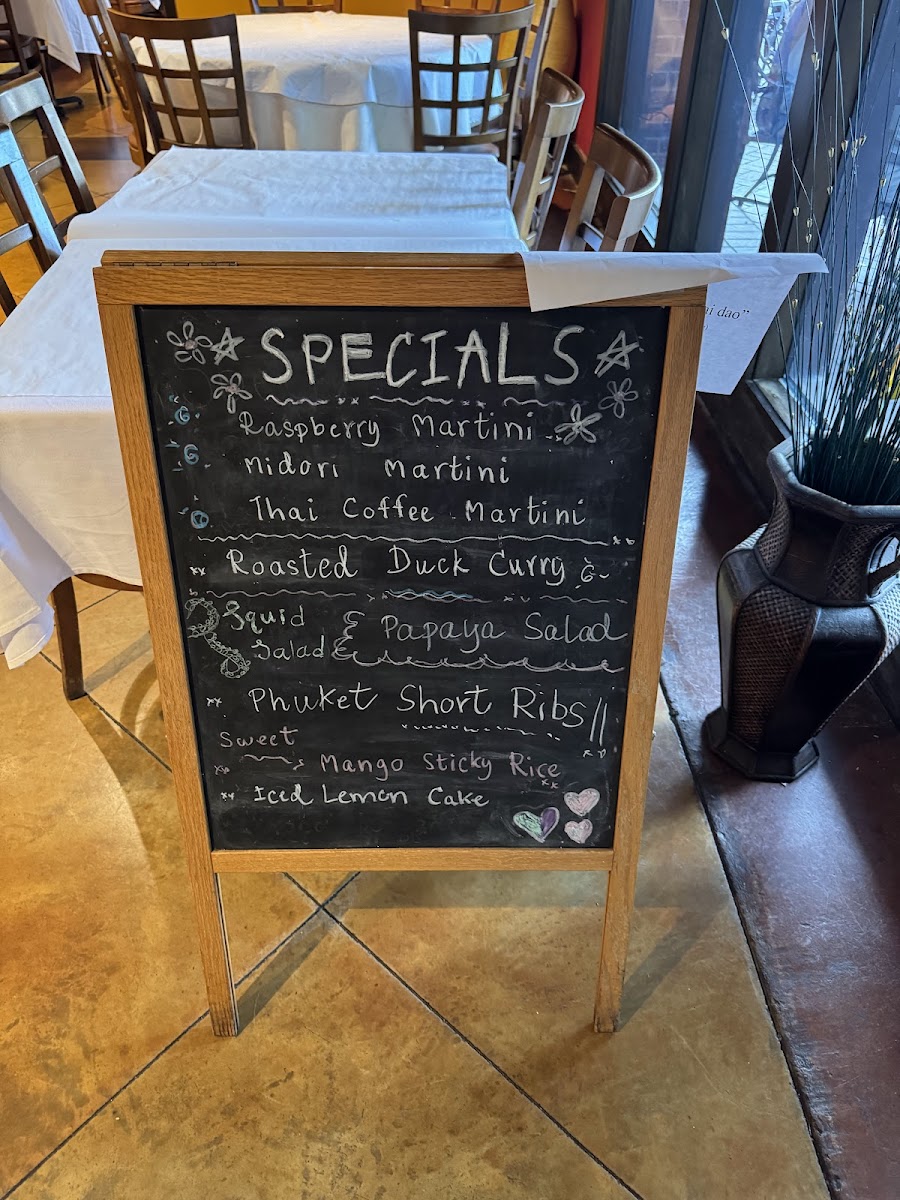 SPECIALS
Raspberry Martini
Midori Martini
Thai Coffee Martini
Roasted Duck Curry
Squid Salad & Papaya Salad
Phuket Short Ribs
Sweet
Mango Sticky Rice
Iced Lemon Cake
dao"